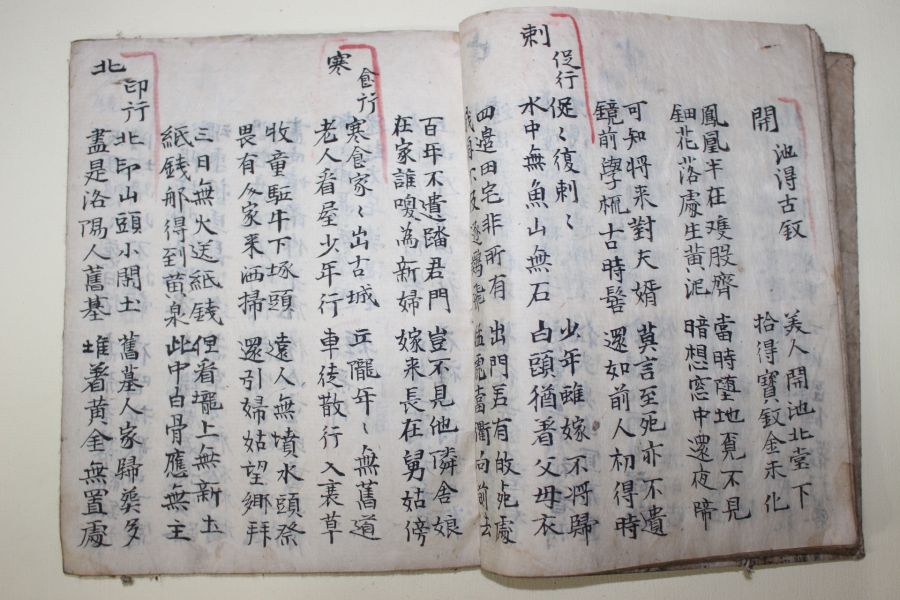 開池得古釵
美人開池北堂下
拾得寶釵金未化
鳳凰半在雙股齊
鈿花落處生黃泥
當時墮地覓不見
暗想窓中還夜啼
可知將來對夫婿
鏡前學梳古時髻
莫言至死亦不遺
還如前人初得時
刺促行
促〻復刺〻
水中無魚山無石
少年雖嫁不將歸
白頭猶着父母衣
四邊田宅非所有
我身不及逐雞飛
出門若有皈死處
猛虎當衢向前去
百年不遣踏君門
在家誰喚為新婦
豈不見他憐舍娘
嫁來長在舅姑傍
寒食行
寒食家〻出古城
老人看屋少年行
丘隴年〻無舊道
車徒散行入衰草
牧童駈牛下塚頭
畏有人家来洒掃
遠人無墳水頭祭
還引婦姑望鄉拜
三日無火送紙錢
紙錢那得到黃泉
但看壠上無新土
此中白骨應無主
北印行
北印山頭小閒土
盡是洛陽人舊基
舊墓人家歸葬多
堆著黃金無置處